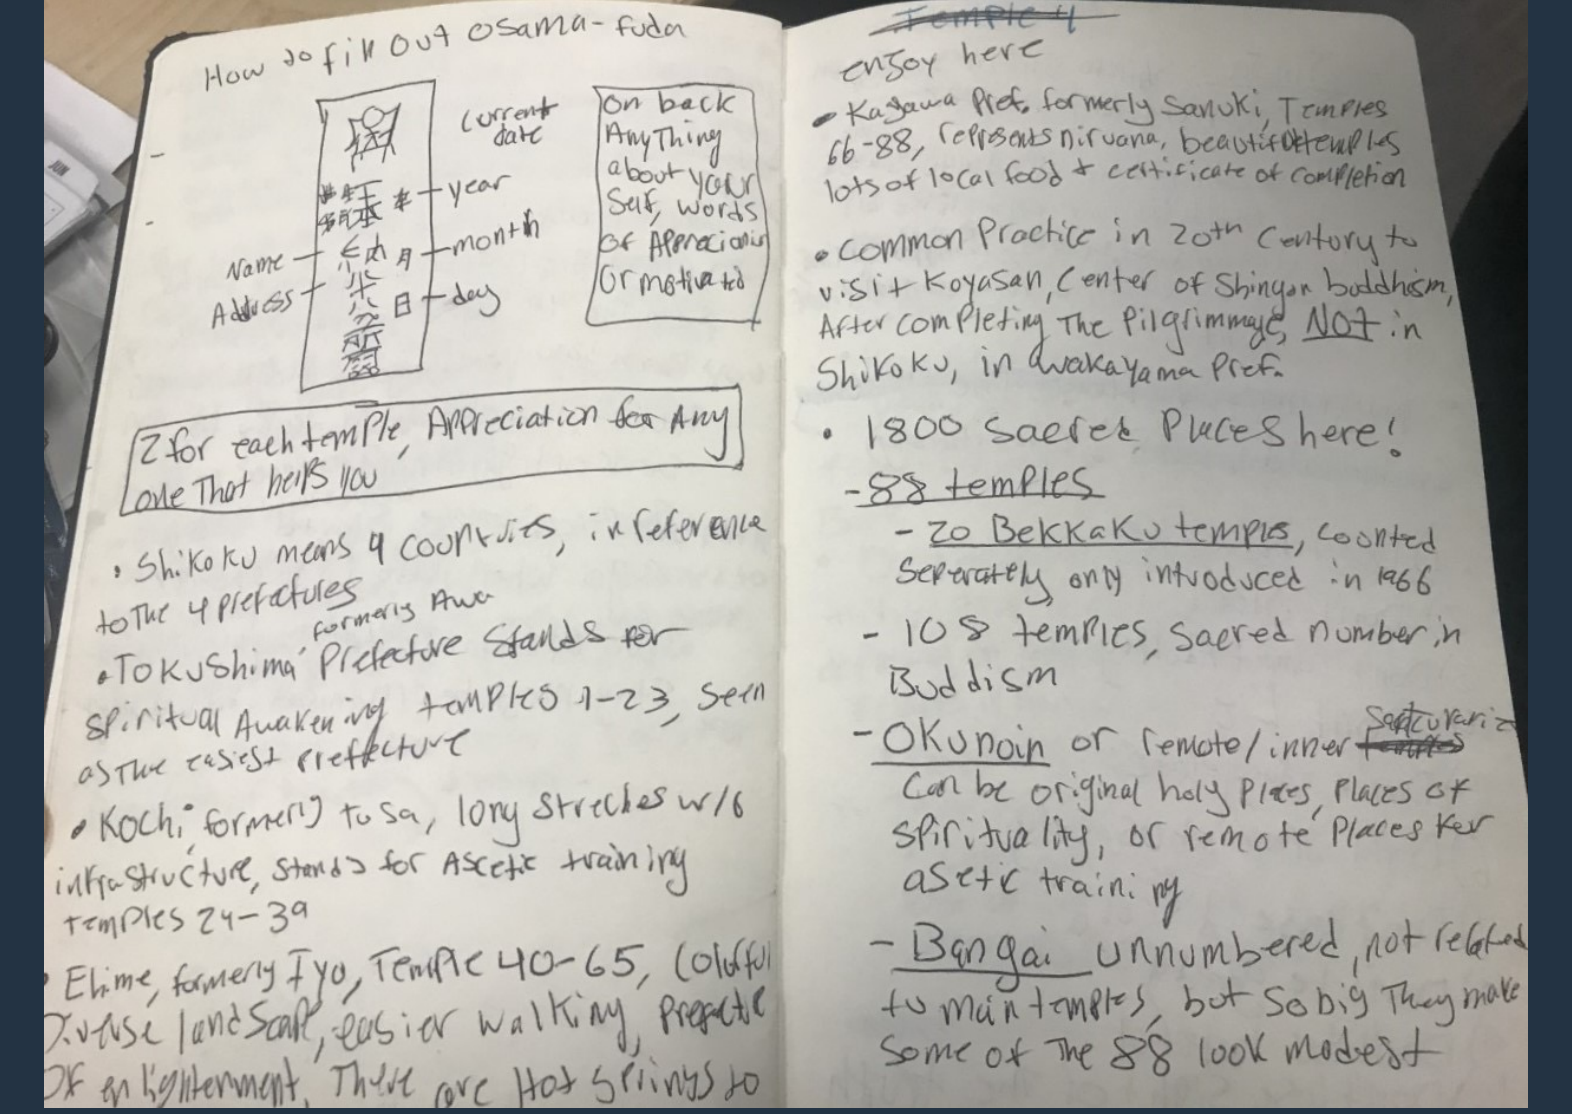 How to fill out osama-fuda
current
date
year
month
day
Name
Address
月
日
on back
AnyThing
about your
Self, words
of Apprecionin
or motivated
2 for each temple, Appreciation for Any
one That helps you
• Shikoku means 4 countries, in reference
to The 4 prefectures
formerly Awa
• Tokushima Prefecture Stands for
spiritual Awakening temples 1-23, seen
as The easiest prefecture
• Kochi, formerly tusa, long streches w/o
infrastructure, stands for Ascetic training
temples 24-39
• Ehime, formerly Iyo, Temple 40-65, Colorful
Diverse landscape, easier walking, prefectre
Of enlightenment, There are Hot Springs to
Temple 4
enjoy here
- Kagawa Pref. formerly Sanuki, Temples
66-88, represents nirvana, beautiful temples
lots of local food + certificate of completion
• Common Practice in 20th Century to
visit Koyasan, Center of Shingon buddhism,
After completing The Pilgrimmage, NOT in
Shikoku, in Wakayama Pref.
• 1800 Sacred Places here!
- 88 temples
- 20 Bekkaku temples, counted
Seperately, only introduced in 1966
- 108 temples, Sacred number in
Buddism
Santcuraries
- Okunoin or remote/inner temples
Can be original holy places, places of
spirituality, or remote places for
asetic training
- Bangai unnumbered, not related
to main temples, but so big They make
some of The 88 look modest
JUN